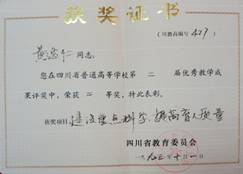 获奖证书
（川教高编号427）
黄宗仁 同志：
您在四川省普通高等学校第二届优秀教学成
果评奖中，荣获二等奖，特此表彰。
获奖项目 建设重点科学、提高育人质量
四川省教育委员会
一九九三年十一月一日